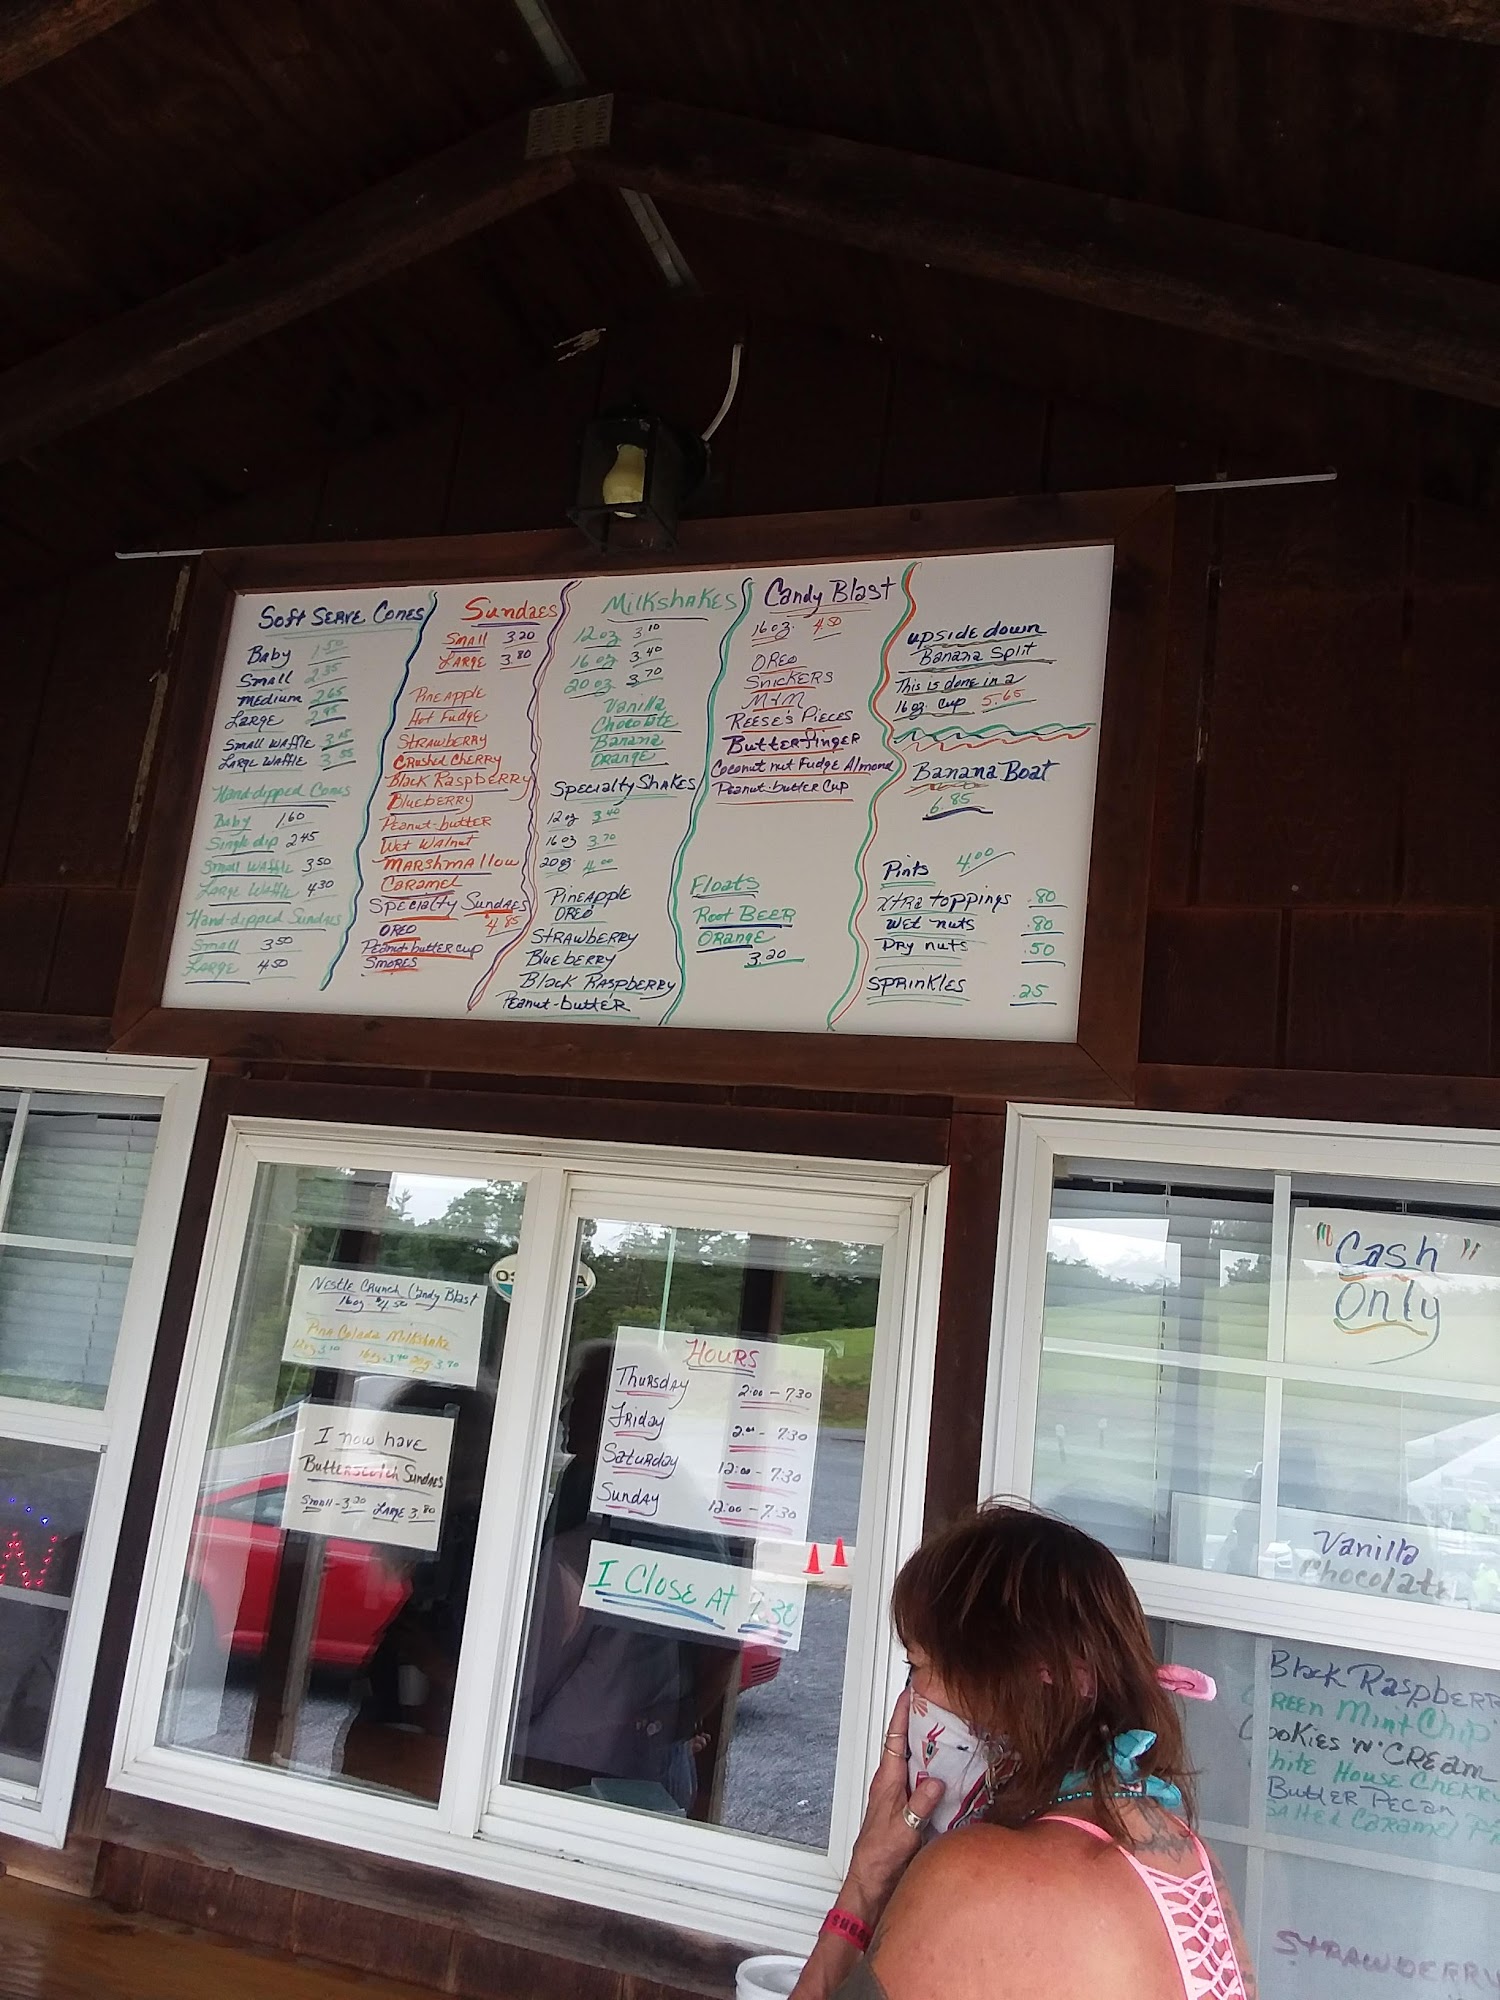 Soft Serve Cones
Baby 1.50
Small 2.35
Medium 2.65
Large 2.95
Small Waffle 3.15
Large Waffle 3.55
Hand-dipped Cones
Baby 1.60
Single dip 2.45
Small Waffle 3.50
Large Waffle 4.30
Hand-dipped Sundaes
Small 3.50
Large 4.50
Sundaes
Small 3.20
Large 3.80
Pineapple
Hot Fudge
Strawberry
Crushed Cherry
Black Raspberry
Blueberry
Peanut-butter
Wet Walnut
Marshmallow
Caramel
Specialty Sundaes
Oreo $4.85
Peanut-butter cup
Smores
Milkshakes
12oz 3.10
16oz 3.40
20oz 3.70
Vanilla
Chocolate
Banana
Orange
Specialty Shakes
12oz 3.40
16oz 3.70
20oz 4.00
Pineapple
Oreo
Strawberry
Blueberry
Black Raspberry
Peanut-butter
Candy Blast
16oz. 4.50
Oreo
Snickers
M+M
Reese's Pieces
Butterfinger
Coconut nut Fudge Almond
Peanut-butter Cup
Floats
Root Beer
Orange
3.20
upside down
Banana Split
This is done in a
16oz. cup 5.65
Banana Boat
6.85
Pints 4.00
xtra toppings .80
Wet nuts .80
Dry nuts .50
Sprinkles .25
Nestle Crunch Candy Blast
16oz. $4.50
Pina Colada Milkshake
12oz 3.10 16oz. 3.40 20oz 3.70
I now have
Butterscotch Sundaes
Small - 3.20 Large 3.80
Hours
Thursday 2:00 - 7:30
Friday 2:00 - 7:30
Saturday 12:00 - 7:30
Sunday 12:00 - 7:30
I Close At 7:30
"Cash"
Only
Vanilla
Chocolate
Black Raspberry
Green Mint Chip
Cookies 'N' Cream
White House Cherry
Butter Pecan
Salted Caramel
Strawberry